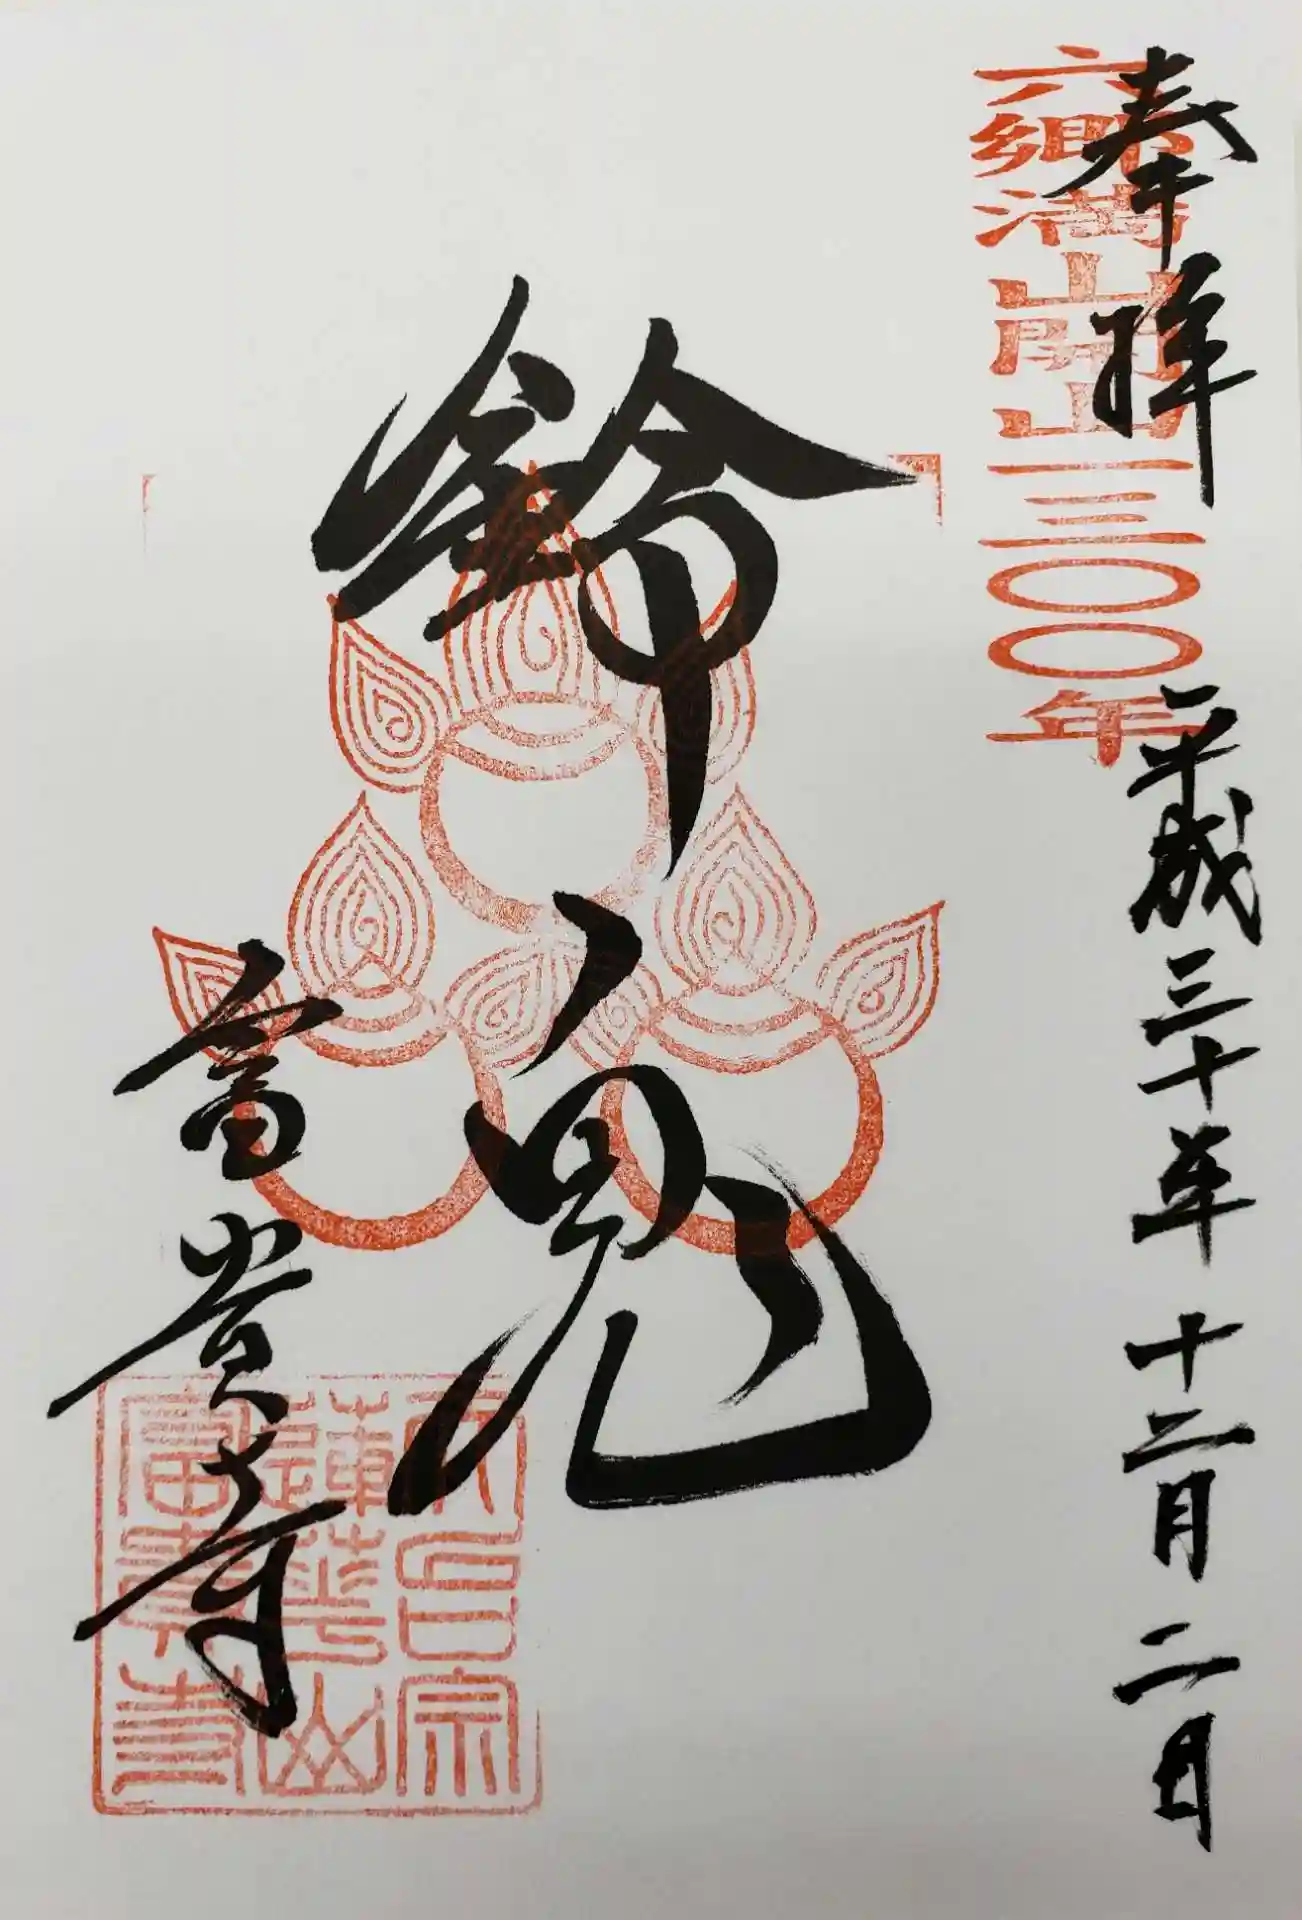 奉拝
六郷満山開山一三〇〇年
平成三十年十二月二日
鈴鬼
富貴寺
天台宗
蓮華山
富貴寺